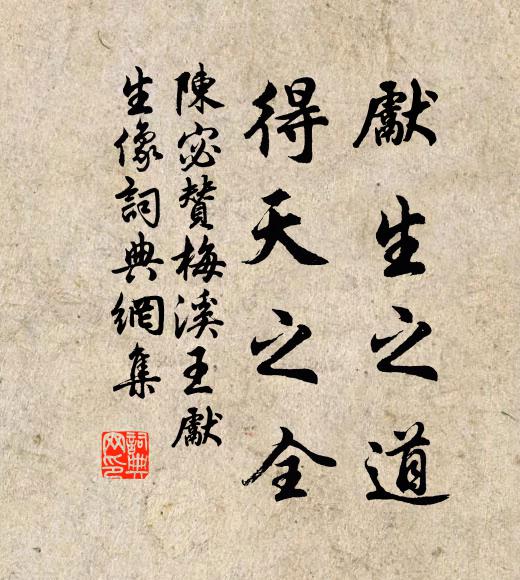 獻生之道
得天之全
陳宓贊梅溪王獻
生像詞典網集
詞典网印